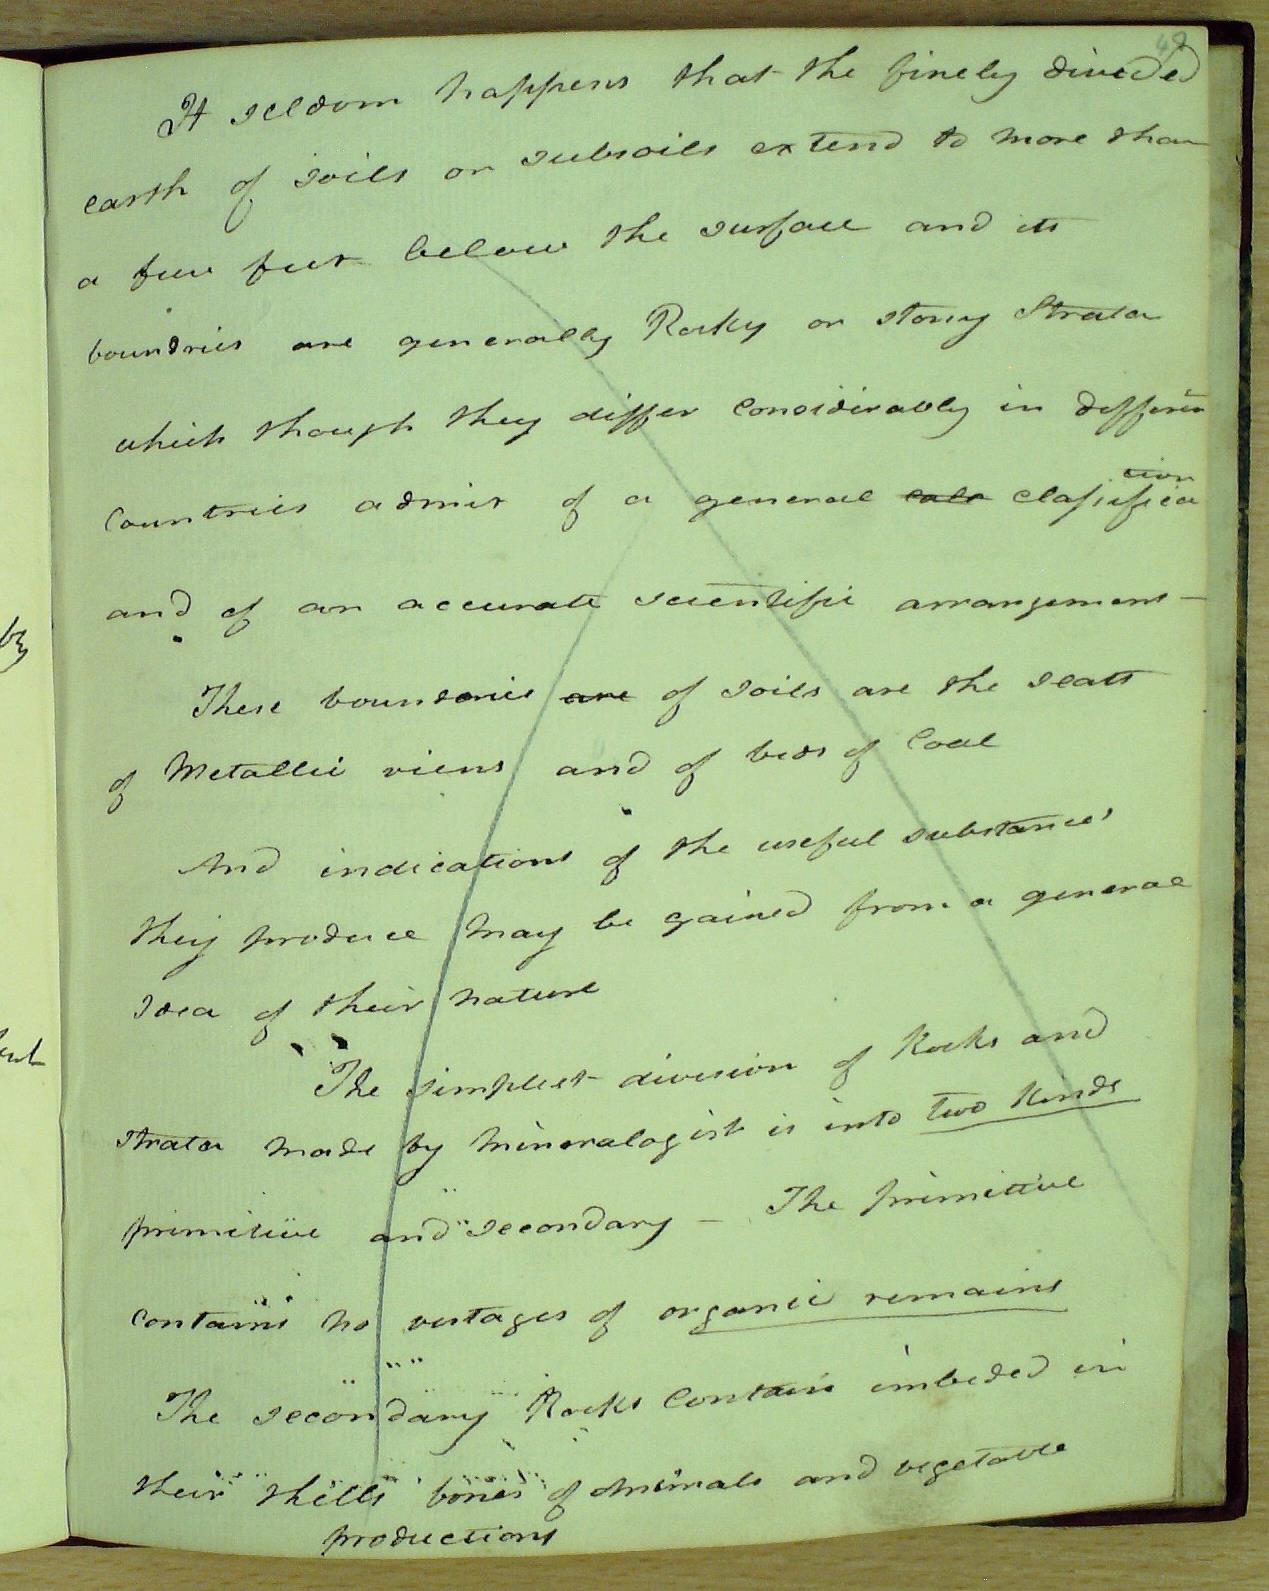 49
It seldom happens that the finely divided
earth of soils or subsoils extend to more than
a few feet below the surface and its
boundries are generally Rocky or stony Strata
which though they differ considerably in differen
Countries admit of a general calr classifica
tion
and of an accurate scientific arrangement -
These boundaries are of soils are the seats
of Metallic viens and of beds of Coal
And indications of the useful substances
they produce may be gained from a general
Idea of their nature
The simplest division of Rocks and
Strata made by mineralogist is into two Kinds
primitive and secondary - The primitive
contains no vestages of organic remains
The secondary Rocks Contain imbeded in
their shells bones of Animals and vegetable
productions
by